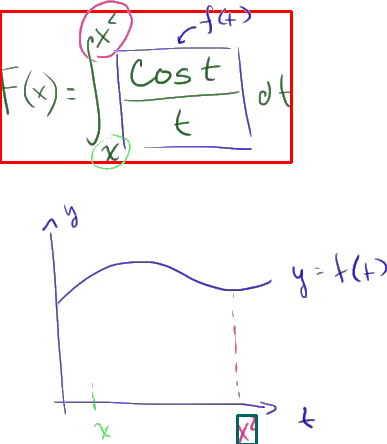 f(t)
F(x) = ∫ₓ^x² cos t / t dt
y
y = f(t)
x
x²
t